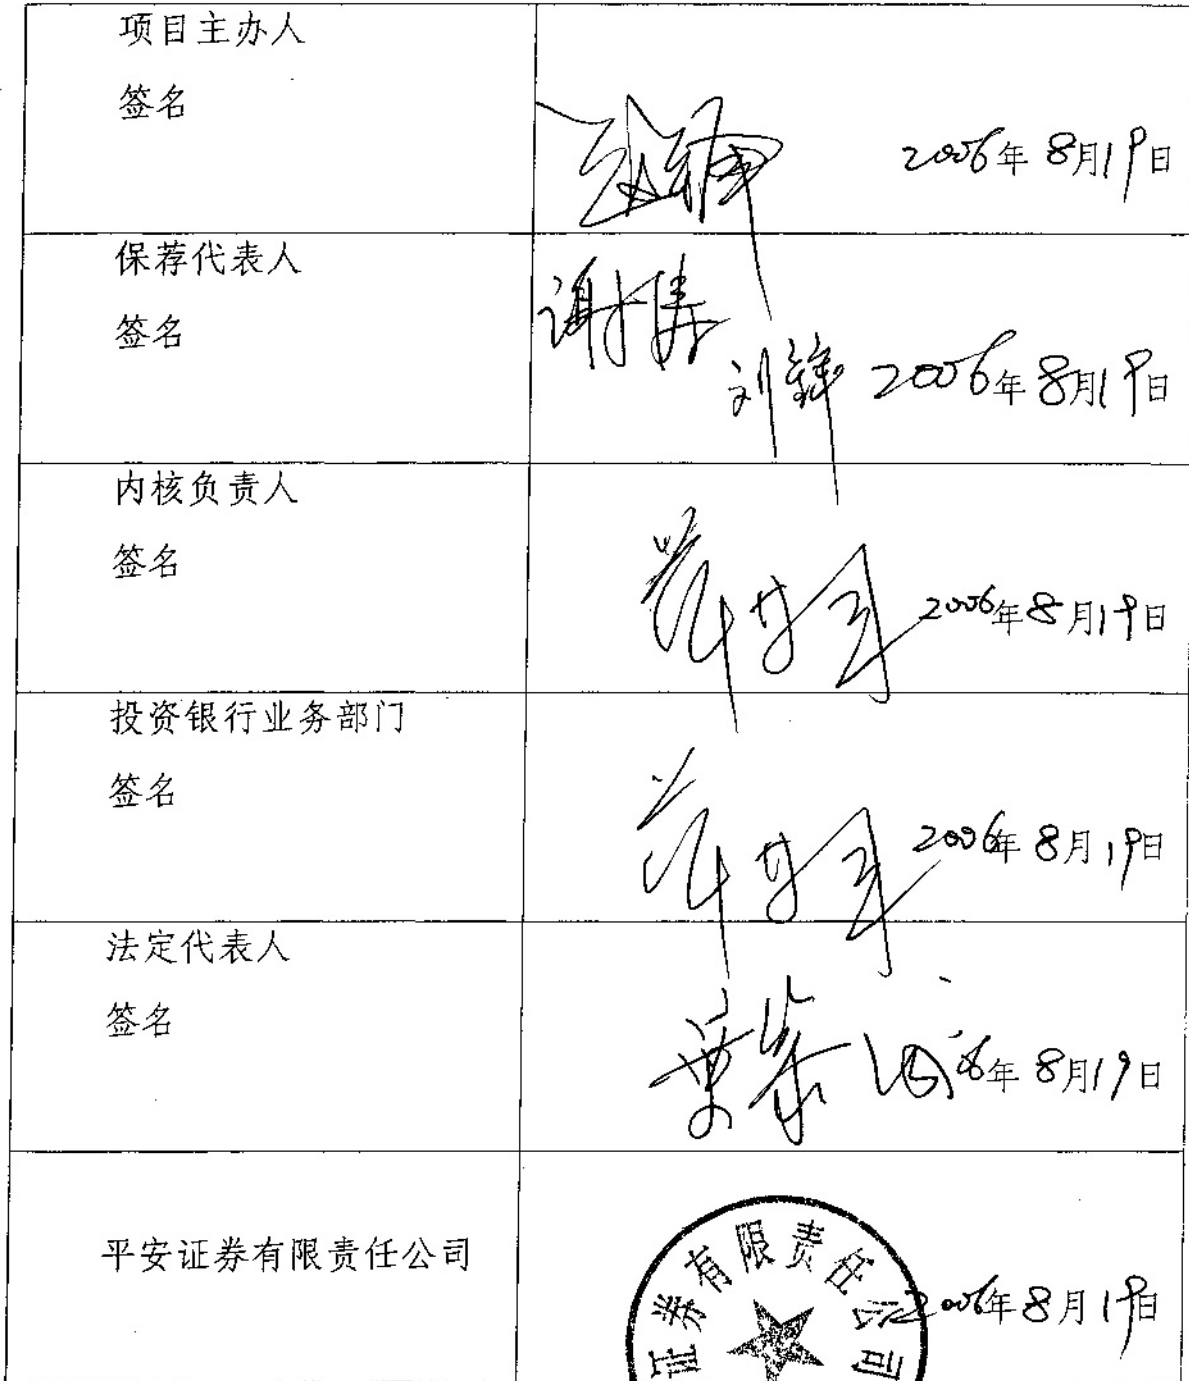 项目主办人
签名
2006年8月19日
保荐代表人
签名
谢涛
刘锋 2006年8月19日
内核负责人
签名
2006年8月19日
投资银行业务部门
签名
2006年8月19日
法定代表人
签名
6年8月19日
平安证券有限责任公司
证券有限责任公司
2006年8月19日